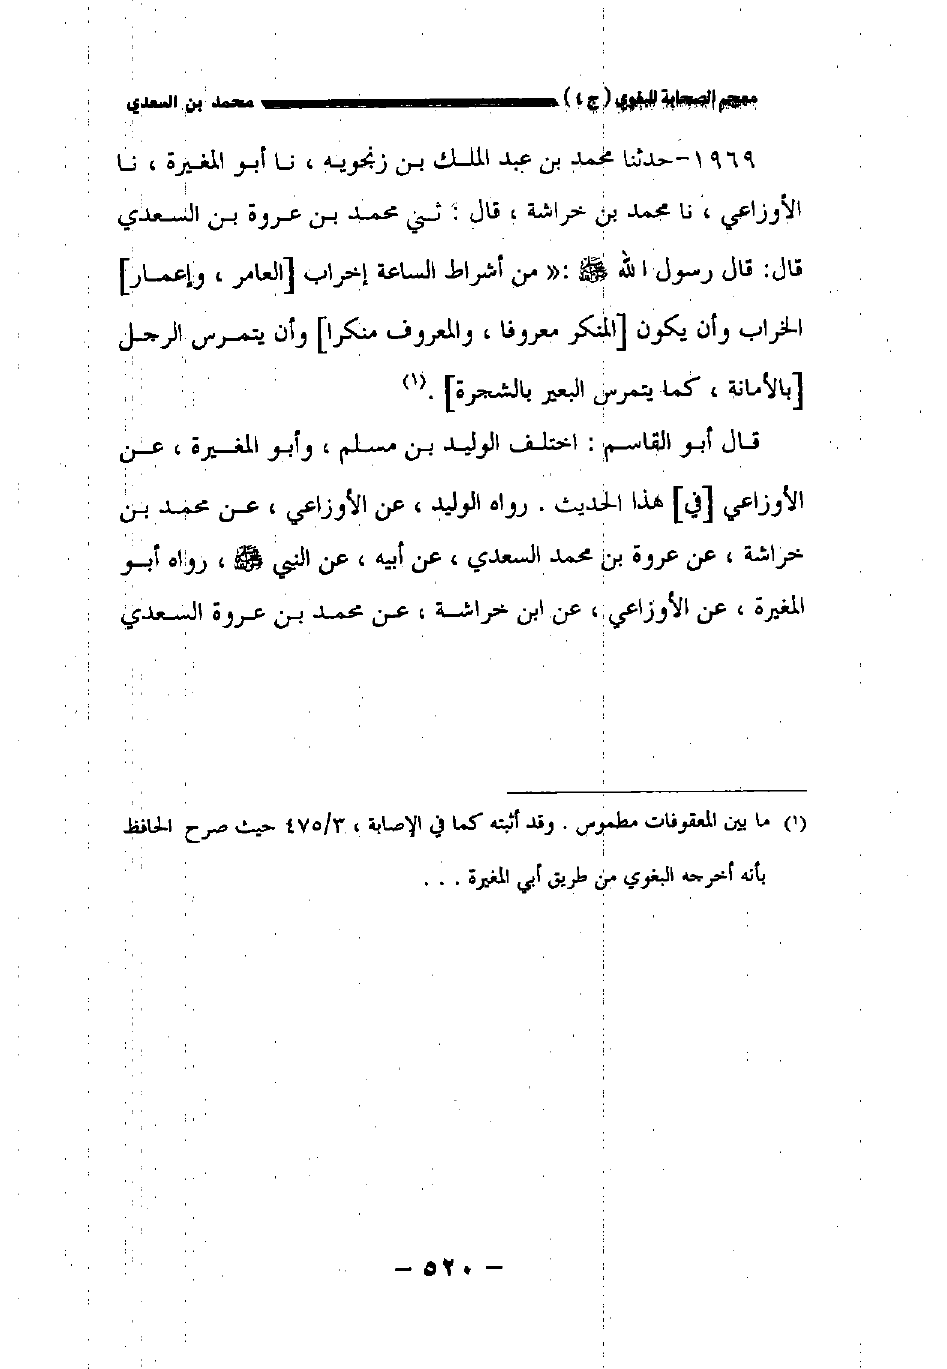 معجم الصحابة للبغوي (ج ٤) محمد بن السعدي
١٩٦٩-حدثنا محمد بن عبد الملك بن زنجويه ، نا أبو المغيرة ، نا
الأوزاعي ، نا محمد بن خراشة ، قال : ثني محمد بن عروة بن السعدي
قال: قال رسول الله ﷺ :« من أشراط الساعة إخراب [العامر ، وإعمار]
الخراب وأن يكون [المنكر معروفا ، والمعروف منكرا] وأن يتمرس الرجل
[بالأمانة ، كما يتمرس البعير بالشجرة] .(١)
قال أبو القاسم : اختلف الوليد بن مسلم ، وأبو المغيرة ، عن
الأوزاعي [في] هذا الحديث . رواه الوليد ، عن الأوزاعي ، عن محمد بن
خراشة ، عن عروة بن محمد السعدي ، عن أبيه ، عن النبي ﷺ ، رواه أبو
المغيرة ، عن الأوزاعي ، عن ابن خراشة ، عن محمد بن عروة السعدي
(١) ما بين المعقوفات مطموس . وقد أثبته كما في الإصابة ، ٤٧٥/٣ حيث صرح الحافظ
بأنه أخرجه البغوي من طريق أبي المغيرة . . .
– ٥٢٠ –